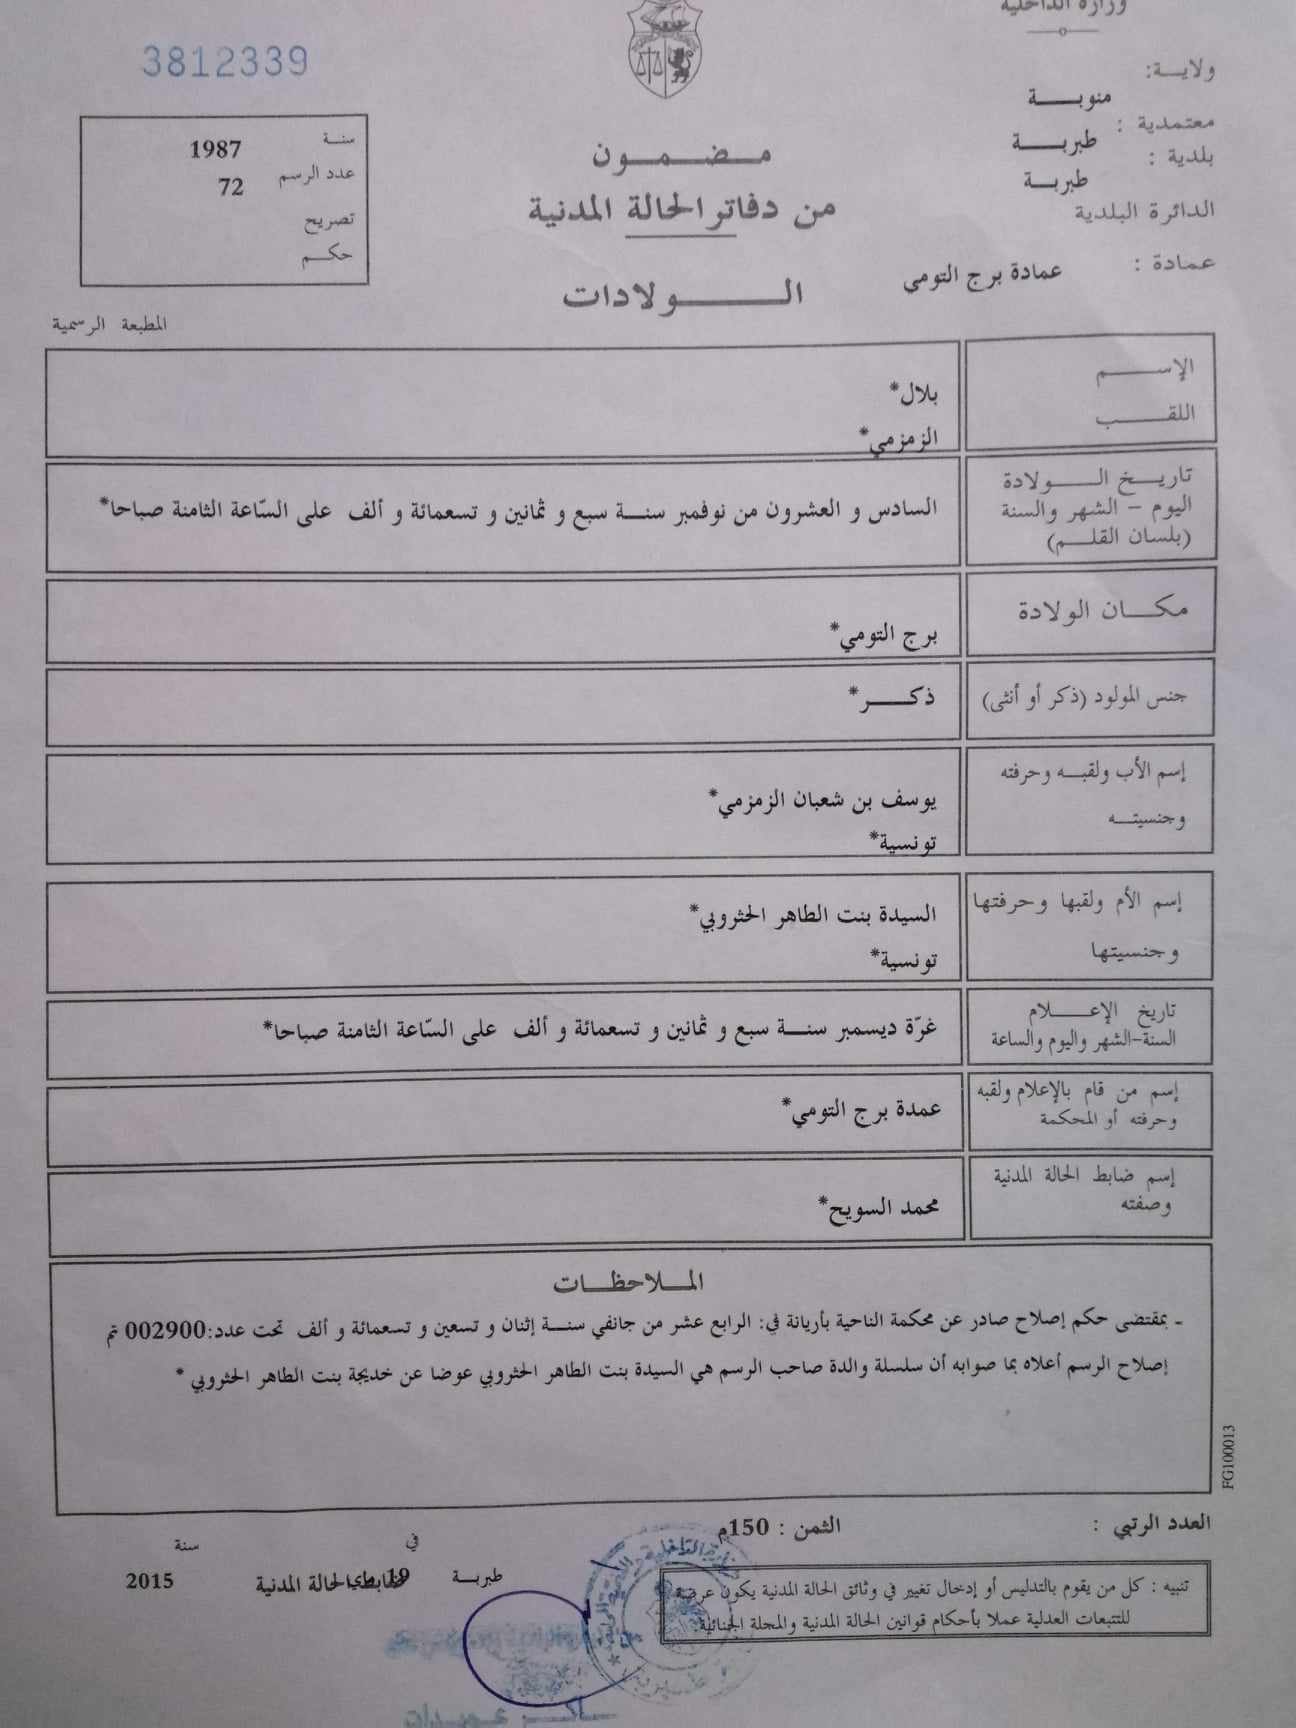 وزارة الداخلية
3812339
ولايـة:
منوبـــة
معتمدية :
طبربـــة
بلدية :
طبربـــة
الدائرة البلدية
عمادة :
عمادة برج التومي
سنـة 1987
عدد الرسم 72
تصريح
حكـم
مـضـمـون
من دفاتر الحالة المدنية
الـــولادات
المطبعة الرسمية
الإســـم
بلال*
اللقـــب
الزمزمي*
تاريـخ الـــولادة
اليوم – الشهر والسنة
(بلسان القلـم)
السادس و العشرون من نوفمبر سنـة سبع و ثمانين و تسعمائة و ألف على السّاعة الثامنة صباحا*
مكـــان الولادة
برج التومي*
جنس المولود (ذكر أو أنثى)
ذكـــر*
إسم الأب ولقبـه وحرفته
وجنسيتـه
يوسف بن شعبان الزمزمي*
تونسية*
إسم الأم ولقبها وحرفتها
وجنسيتها
السيدة بنت الطاهر الحثروبي*
تونسية*
تاريخ الإعـــلام
السنة-الشهر واليوم والساعة
غرّة ديسمبر سنـة سبع و ثمانين و تسعمائة و ألف على السّاعة الثامنة صباحا*
إسم من قام بالإعلام ولقبه
وحرفته أو المحكمة
عمدة برج التومي*
إسم ضابط الحالة المدنية
وصفته
محمد السويح*
الملاحظـات
- بمقتضى حكم إصلاح صادر عن محكمة الناحية بأريانة في: الرابع عشر من جانفي سنـة إثنان و تسعين و تسعمائة و ألف تحت عدد:002900 تم
إصلاح الرسم أعلاه بما صوابه أن سلسلة والدة صاحب الرسم هي السيدة بنت الطاهر الحثروبي عوضا عن خديجة بنت الطاهر الحثروبي *
FG100013
العدد الرتبي :
الثمن : 150م
في
سنة
طبربـــة 19 ماي 2015
ضابط الحالة المدنية
تنبيه : كل من يقوم بالتدليس أو إدخال تغيير في وثائق الحالة المدنية يكون عرضة
للتتبعات العدلية عملا بأحكام قوانين الحالة المدنية والمجلة الجنائية.